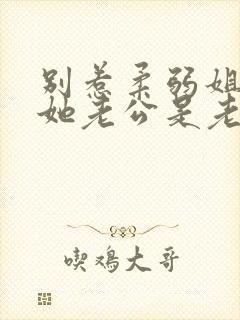 别惹柔弱姐
她老公是老
喫鸡大哥